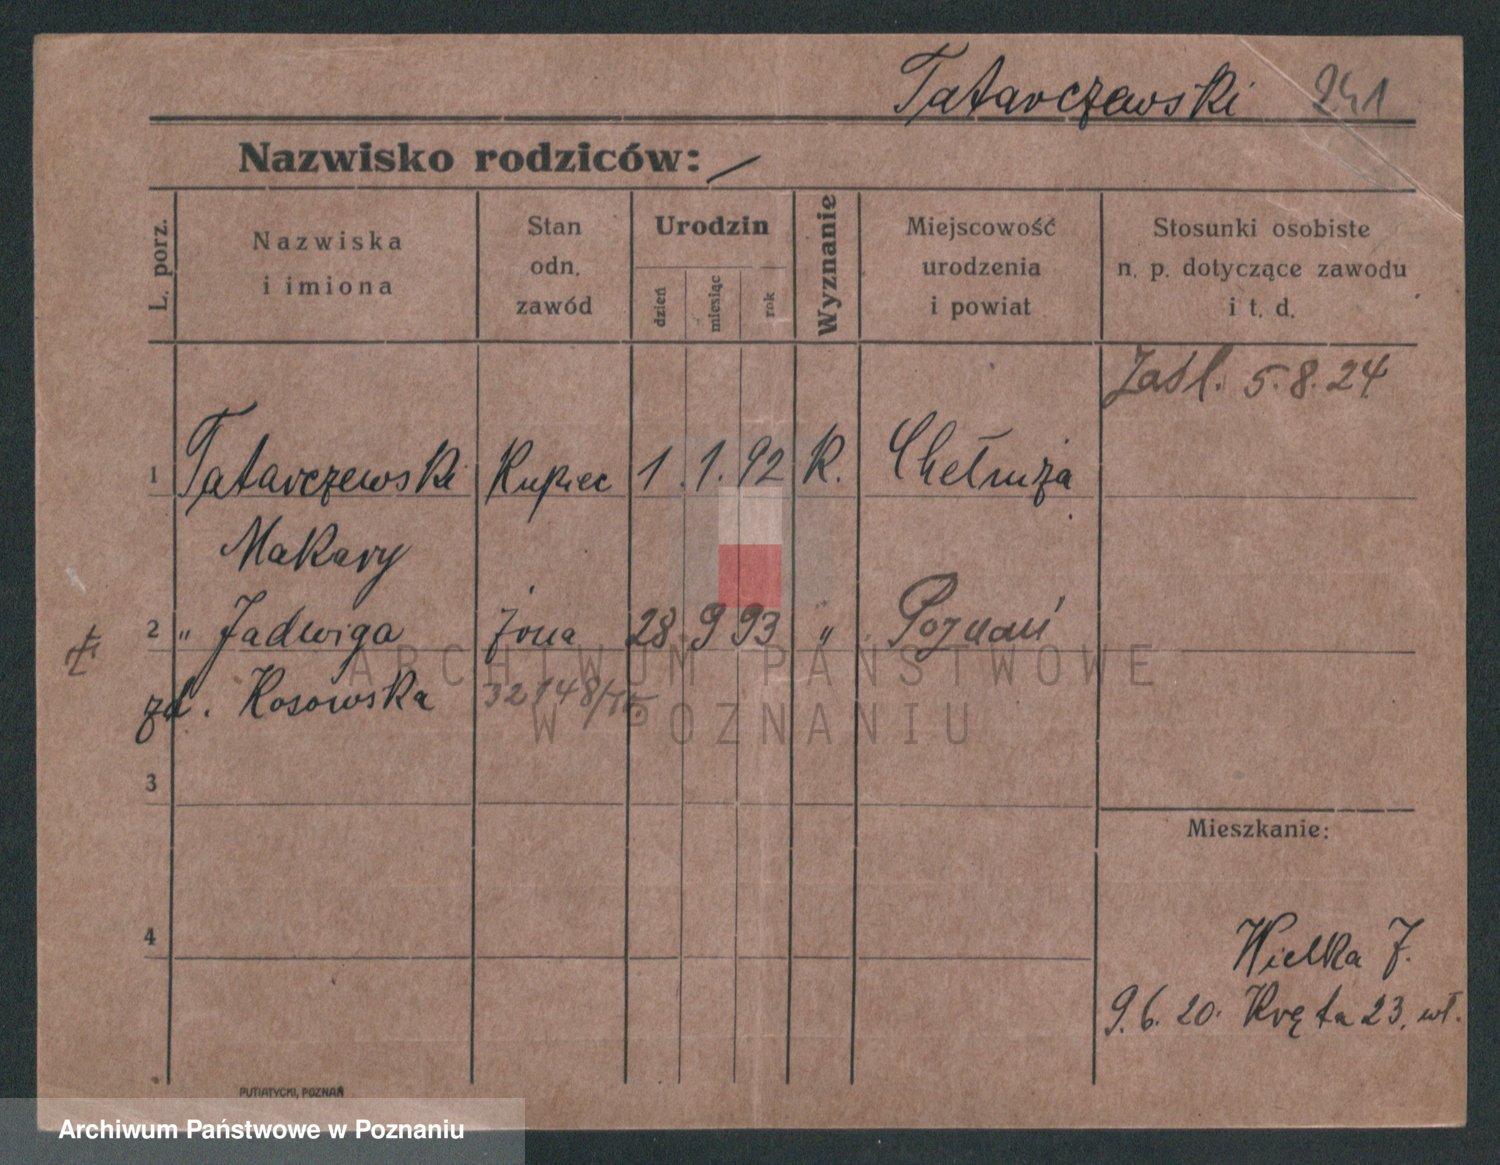 Tatarczewski 241
Nazwisko rodziców: /
L. porz.
Nazwiska
i imiona
Stan
odn.
zawód
Urodzin
dzień
miesiąc
rok
Wyznanie
Miejscowość
urodzenia
i powiat
Stosunki osobiste
n. p. dotyczące zawodu
i t. d.
Zaśl. 5.8.24
1 Tatarczewski Kupiec 1. 1. 92 K. Chełmża
Makary
2 " Jadwiga żona 28. 9 93 " Poznań
zd. Kosowska 32148/
3
4
Mieszkanie:
Wielka 7.
9.6.20. Kręta 23. wł.
PUTIATYCKI, POZNAŃ
ARCHIWUM PAŃSTWOWE
W POZNANIU
Archiwum Państwowe w Poznaniu